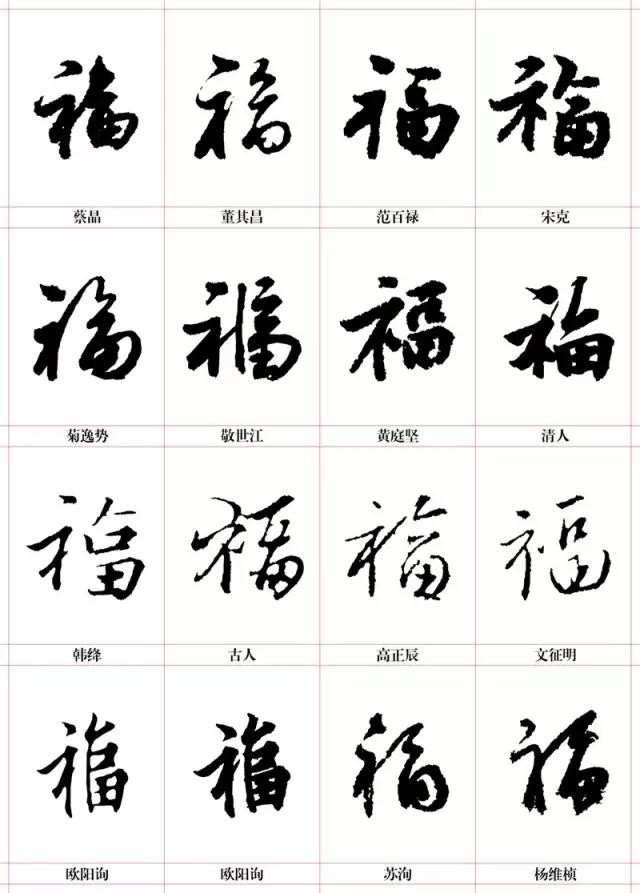 福 福 福 福
蔡晶 董其昌 范百禄 宋克
福 福 福 福
菊逸势 敬世江 黄庭坚 清人
福 福 福 福
韩绛 古人 高正辰 文征明
福 福 福 福
欧阳询 欧阳询 苏洵 杨维桢